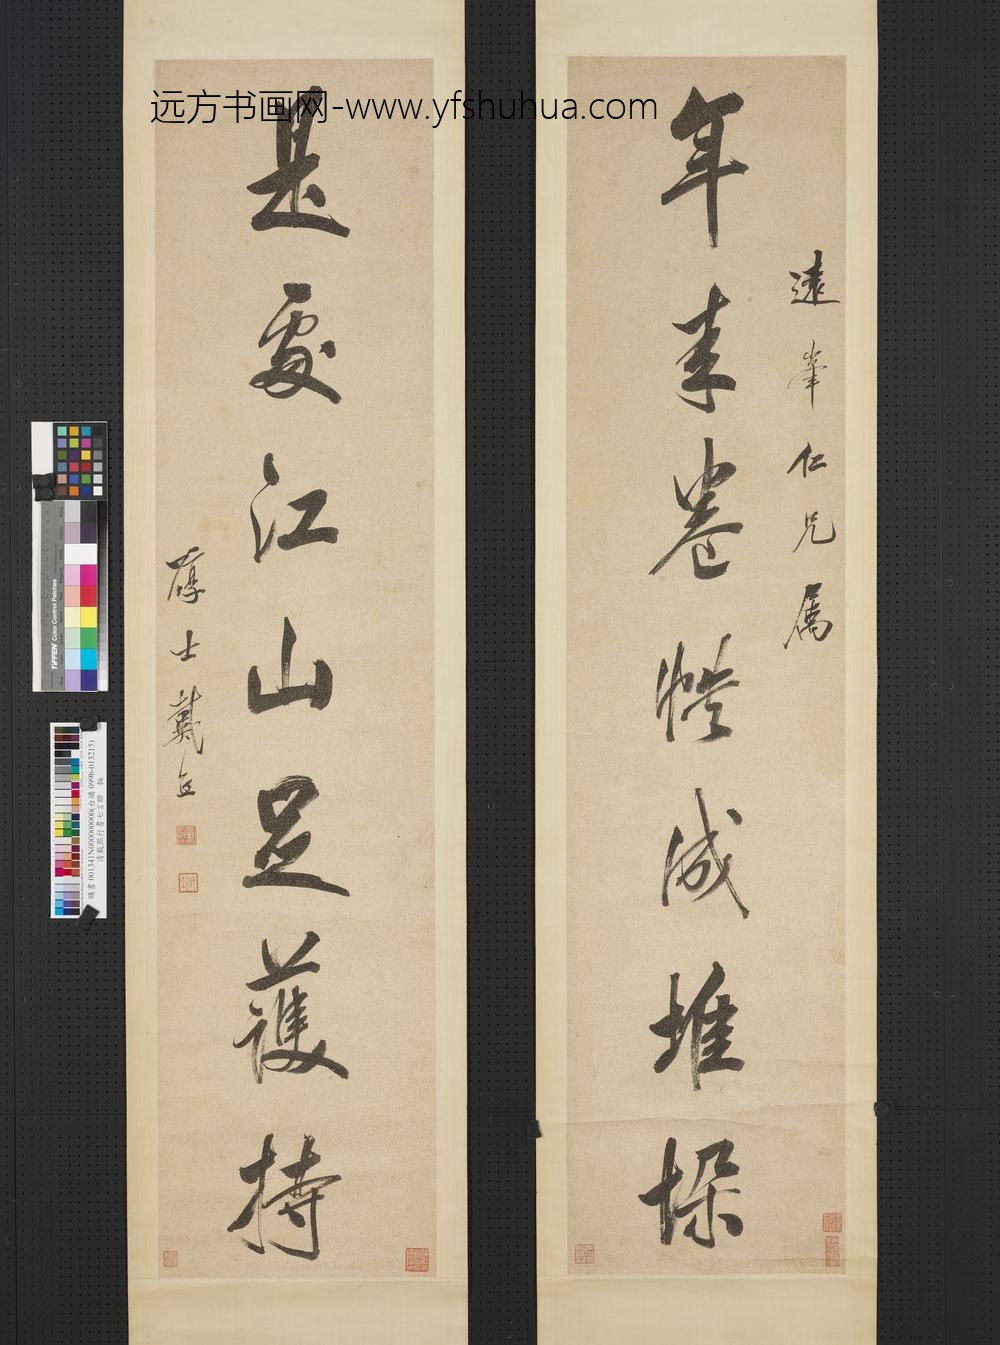 远方书画网-www.yfshuhua.com
遠峯仁兄属
年来卷帙成堆垛
是處江山足護持
醇士戴熙
TIFFEN Color Control Patches
購書 001341N000000000(台購 099b-013215)
清戴熙行書七言聯 軸